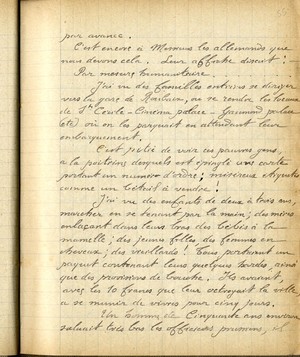 par avance.
C'est encore à Messieurs les allemands que
nous devons cela. Leur affiche disait :
Par mesure humanitaire.
J'ai vu des familles entières se diriger
vers la gare de Roubaix, ou se rendre les locaux
de Ste Cécile - Casino palace - Gaumont palace
(etc) où on les parquait en attendant leur
embarquement.
C'est pitié de voir ces pauvres gens,
à la poitrine desquels est épinglé une carte
portant un numéro d'ordre ; miséreux
comme un bétail à vendre !
J'ai vu des enfants de deux à trois ans,
marcher en se tenant par la main ; des mères
enlaçant dans leurs bras des bébés à la
mamelle ; des jeunes filles, des femmes en
cheveux ; des vieillards ! Tous, portaient un
paquet contenant leurs quelques hardes, ainsi
que des provisions de bouche. Ils avaient
avec les 10 francs que leur octroyait la ville
à se munir de vivres pour cinq jours.
Un homme de Cinquante ans environ
saluait très bas les officiers prussiens, et